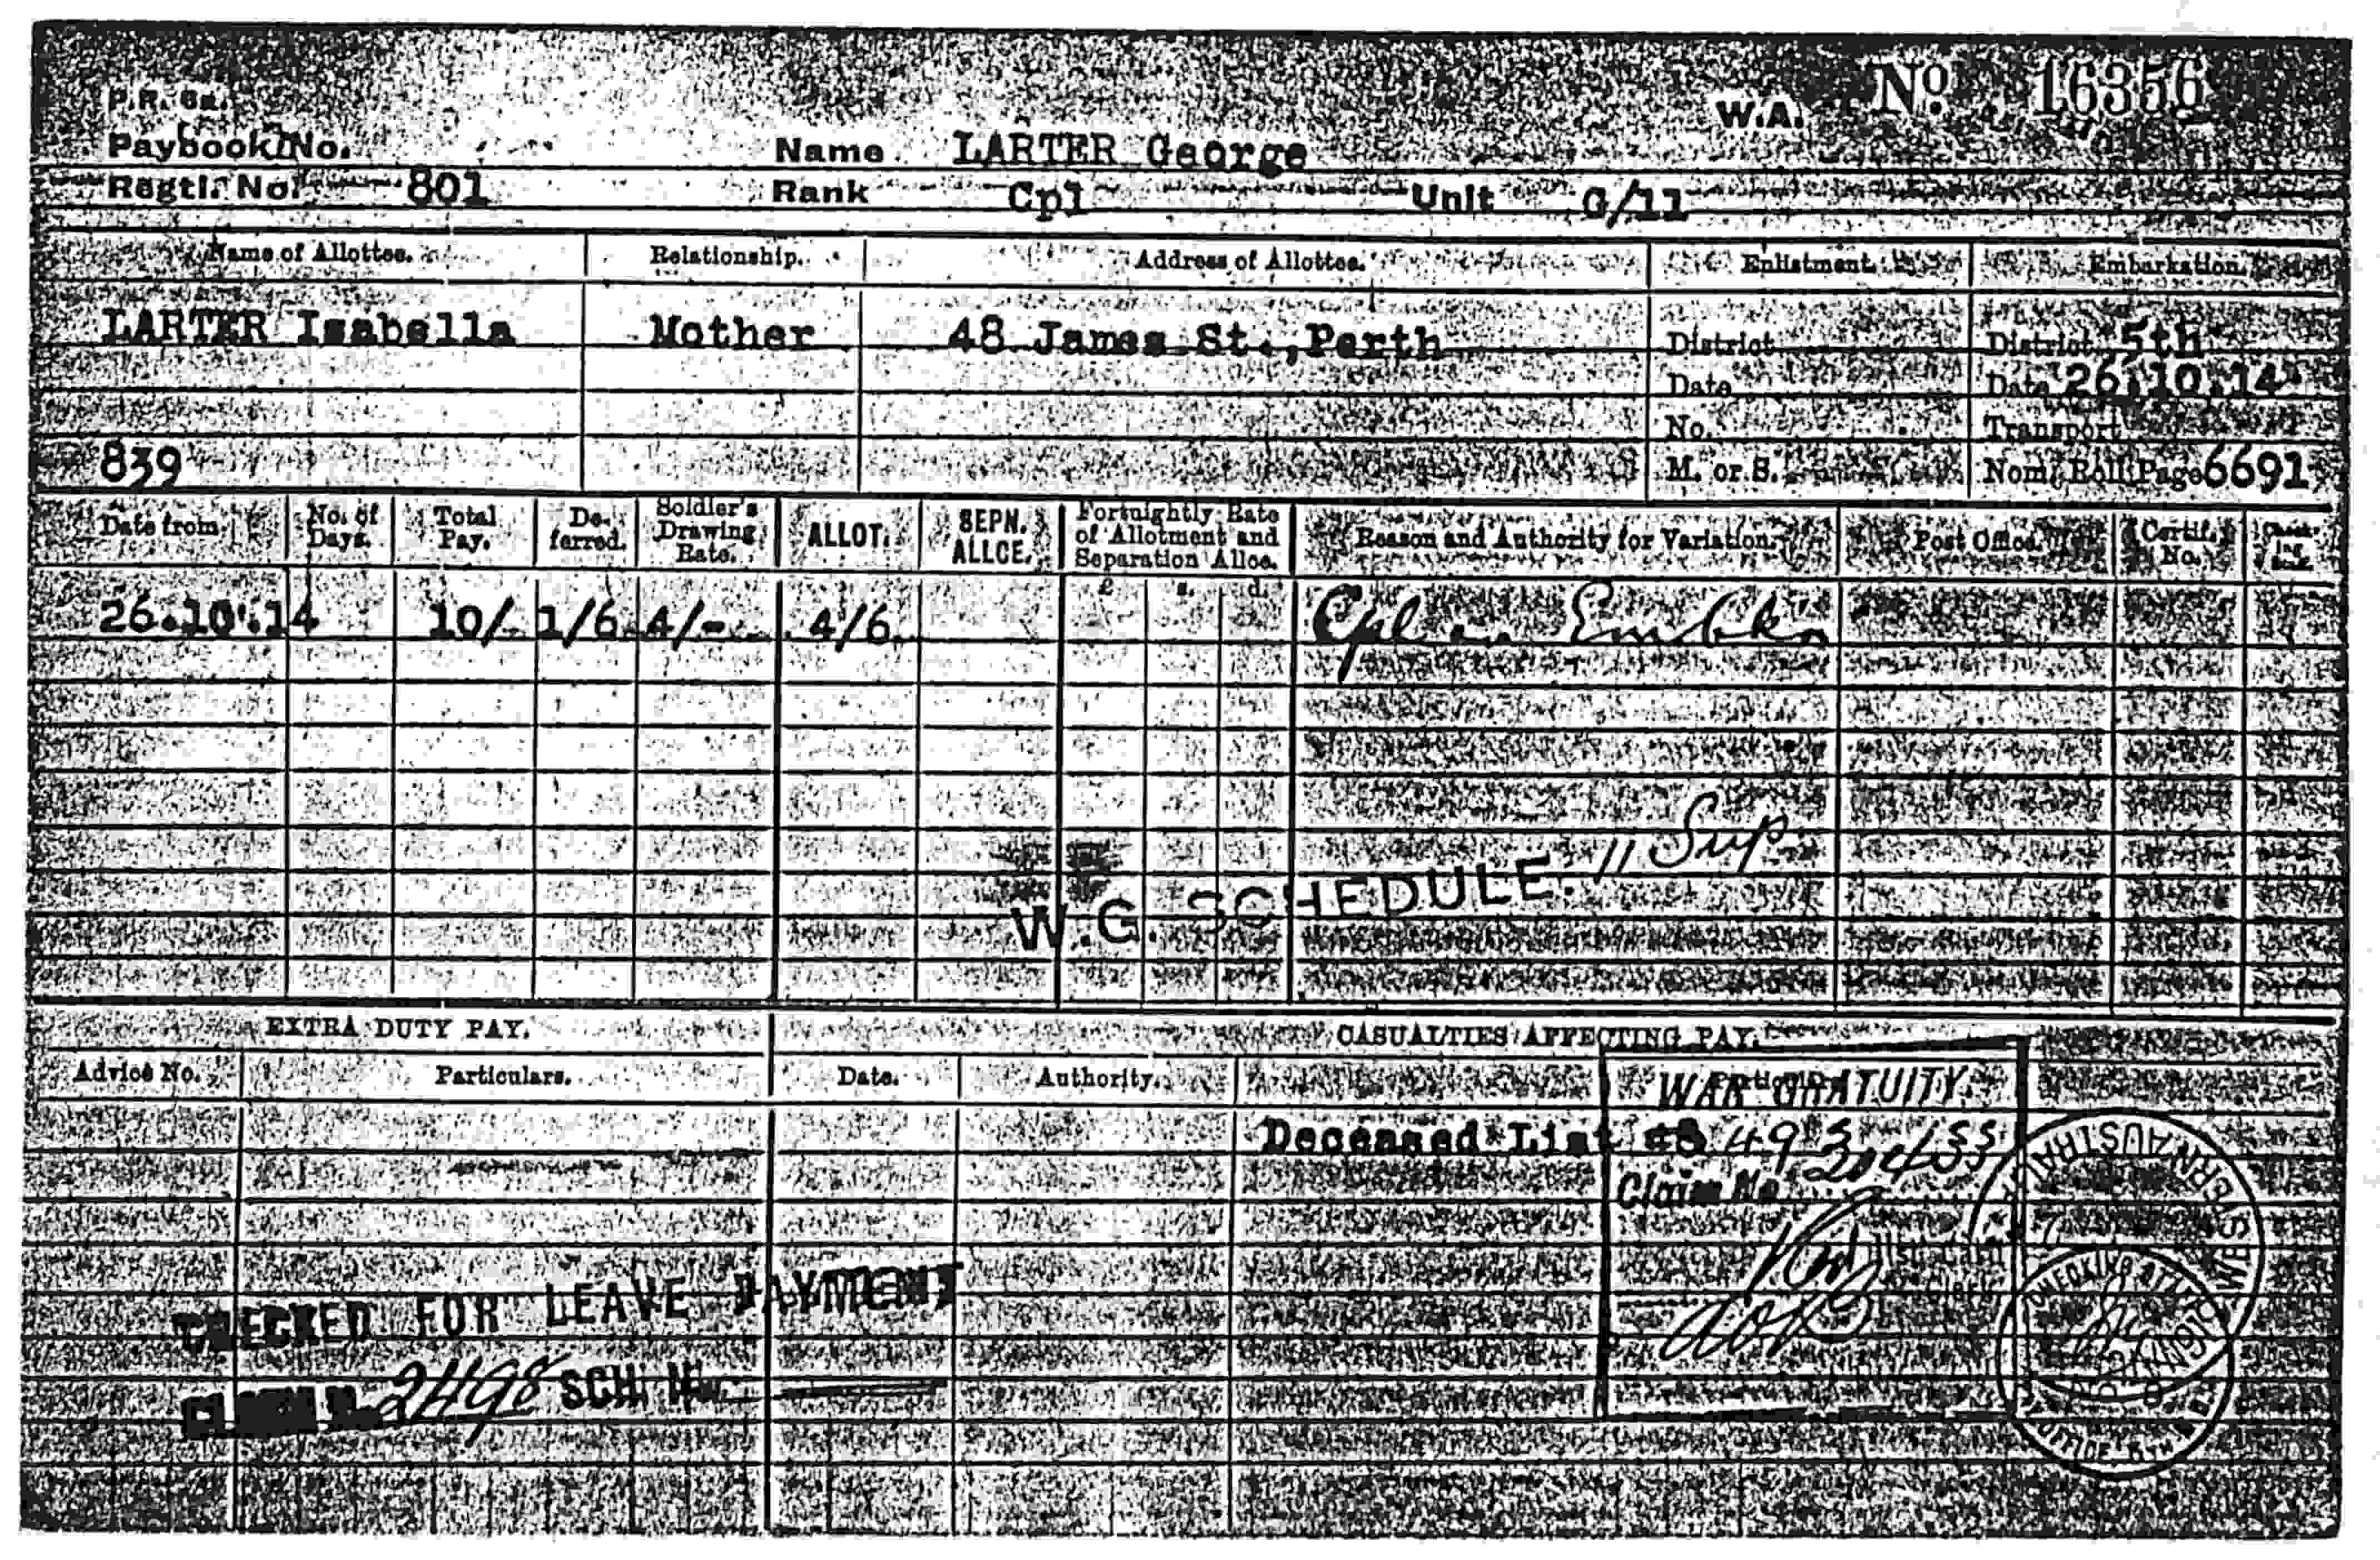 W.A. No. 16356
P.R. 6a.
Paybook No. Name LARTER George
Regtl. No. 801 Rank Cpl Unit G/11
Name of Allottee. Relationship. Address of Allottee. Enlistment. Embarkation.
LARTER Isabella Mother 48 James St., Perth District District 5th
Date Date 26.10.14
No. Transport
839 M. or S. Nom. Roll Page 6691
Date from No. of Days. Total Pay. De-ferred. Soldier's Drawing Rate. ALLOT. SEPN. ALLCE. Fortnightly Rate of Allotment and Separation Allce. Reason and Authority for Variation. Post Office. Certif. No.
£ s. d.
26.10.14 10/- 1/6 4/- 4/6 Cpl on Embkn
W.G. SCHEDULE. 11 Sup
EXTRA DUTY PAY. CASUALTIES AFFECTING PAY.
Advice No. Particulars. Date. Authority. Particulars
WAR GRATUITY.
Deceased List 49
Claim No
WESTERN AUSTRALIA
CHECKED FOR LEAVE PAYMENT
2498 SCH. N